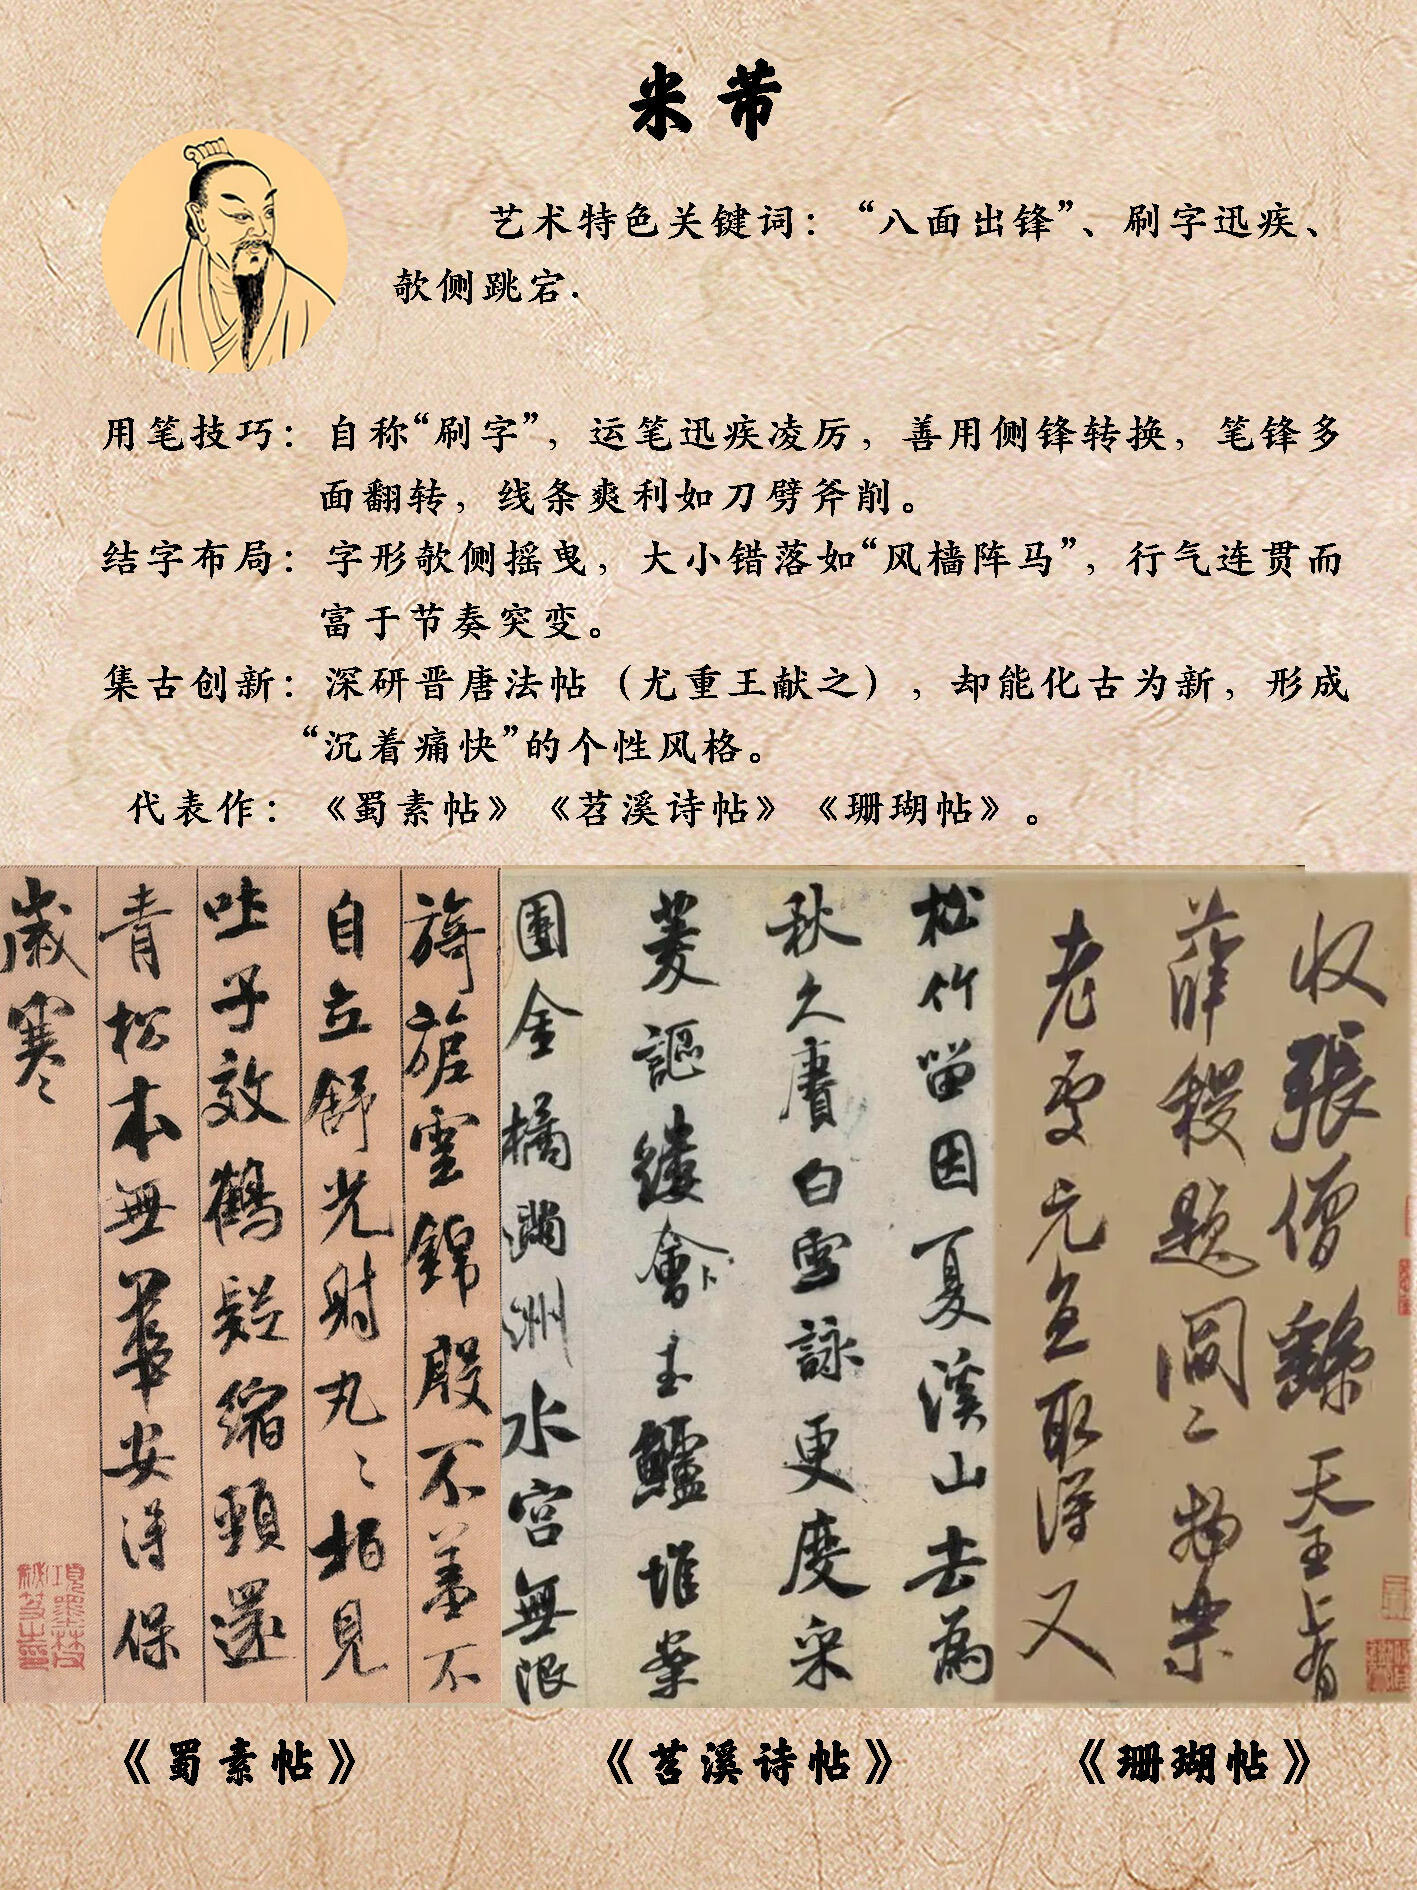 米芾
艺术特色关键词：“八面出锋”、刷字迅疾、
欹侧跳宕.
用笔技巧：自称“刷字”，运笔迅疾凌厉，善用侧锋转换，笔锋多
面翻转，线条爽利如刀劈斧削。
结字布局：字形欹侧摇曳，大小错落如“风樯阵马”，行气连贯而
富于节奏突变。
集古创新：深研晋唐法帖（尤重王献之），却能化古为新，形成
“沉着痛快”的个性风格。
代表作：《蜀素帖》《苕溪诗帖》《珊瑚帖》。
收張僧繇天王上有
薛稷題閻二物樂
老處元直取得又
松竹留因夏溪山去為
秋久賡白雪詠更度采
菱謳縷會玉鱸堆案
團金橘滿洲水宮無限
旖旎雲錦殷不羞不
自立舒光射丸〻柏見
吐子效鶴疑縮頸還
青松本無華安得保
歲寒〻
項墨林父秘笈之印
《蜀素帖》
《苕溪诗帖》
《珊瑚帖》